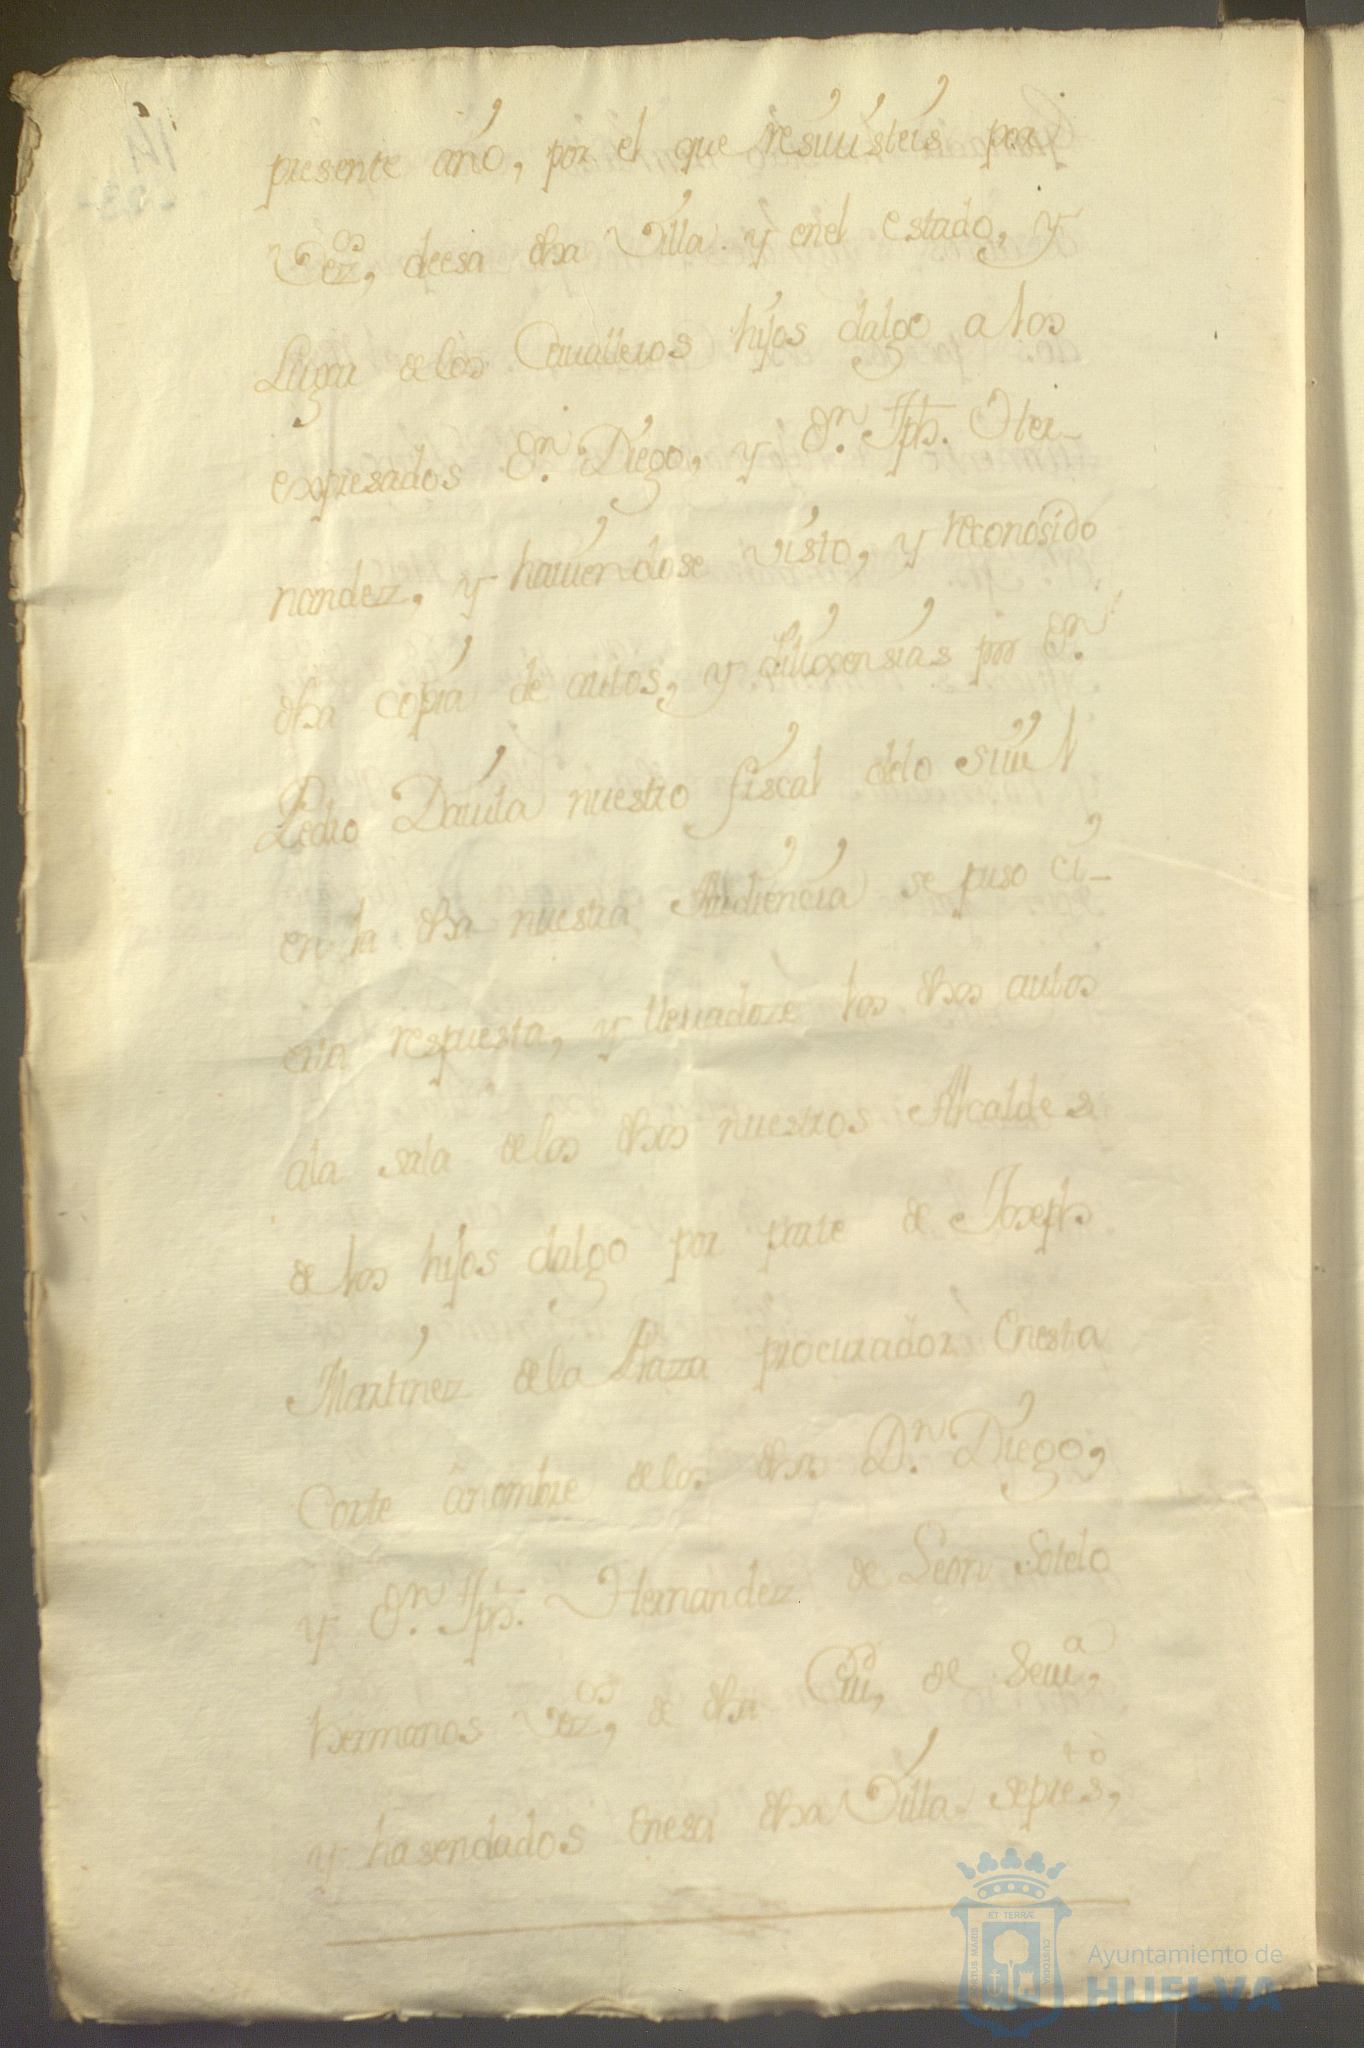 presente año, por el que resiuisteis por
Vez.os, deesa dha Villa y enel estado, y
Lugar delos Caualleros hijos dalgo a los
expresados Dn. Diego, y Dn. Jph. Her-
nandez, y hauiendose visto, y reconosido
dha copia de autos, y dilixensias por Dn.
Pedro Dauila nuestro fiscal delo siuil
en la dha nuestra Audiencia se puso ci-
erta respuesta, y lleuadoze los dhos autos
ala sala delos dhos nuestros Alcaldes
de los hijos dalgo por parte de Joseph
Martinez dela Plaza procurador enesta
Corte anombre delos dhos Dn. Diego,
y Dn. Jph. Hernandez de Leon Sotelo
hermanos Vez.os, de dha Ciud, de Seuia,
y hasendados enesa dha Villa sepresto,
ET TERRÆ
PORTUS MARIS
CUSTODIA
Ayuntamiento de
HUELVA